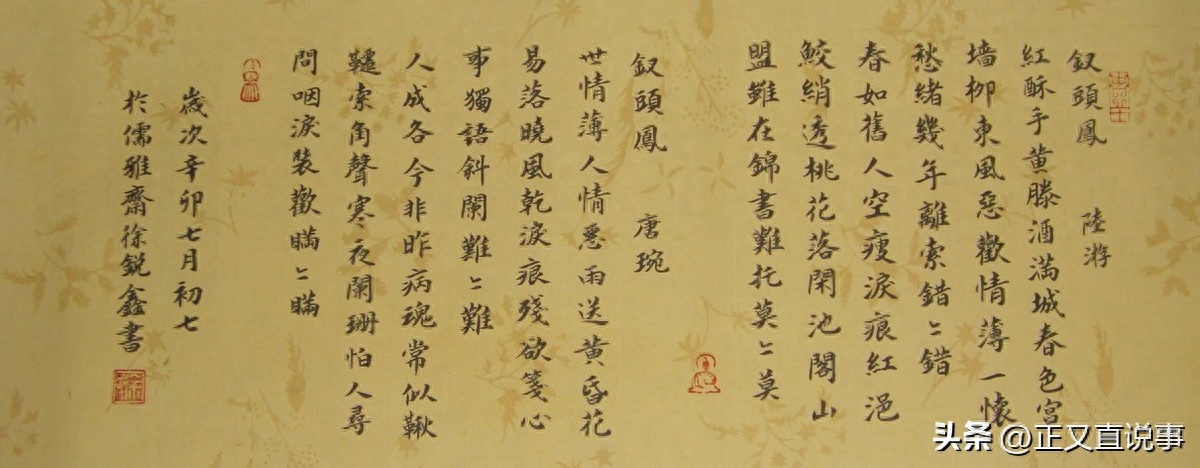 釵頭鳳 陸游
紅酥手黄滕酒滿城春色宫
墻柳東風惡歡情薄一懷
愁緒幾年離索錯〻錯
春如舊人空瘦淚痕紅浥
鮫綃透桃花落閑池閣山
盟雖在錦書難托莫〻莫
釵頭鳳 唐琬
世情薄人情惡雨送黄昏花
易落曉風乾淚痕殘欲箋心
事獨語斜闌難〻難
人成各今非昨病魂常似鞦
韆索角聲寒夜闌珊怕人尋
問咽淚裝歡瞞〻瞞
歲次辛卯七月初七
於儒雅齋徐銳鑫書
头条 @正又直说事